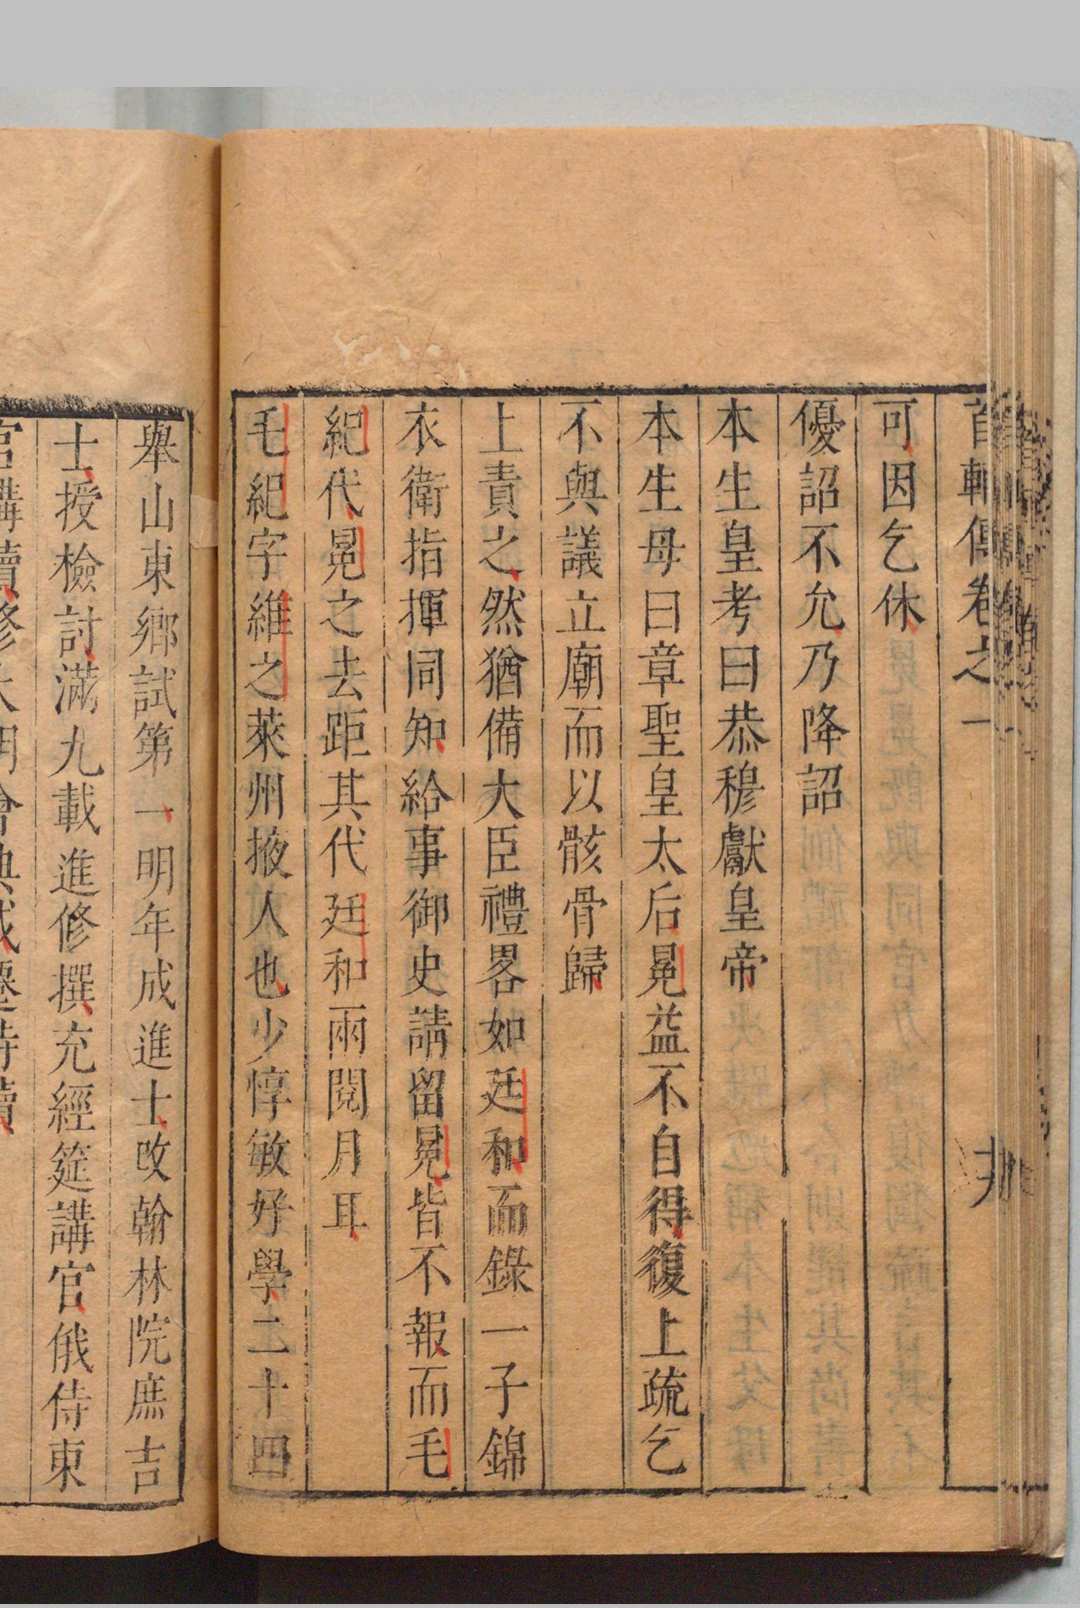 首輔傳卷之一
可因乞休
優詔不允乃降詔
本生皇考曰恭穆獻皇帝
本生母曰章聖皇太后冕益不自得復上疏乞
不與議立廟而以骸骨歸
上責之然猶備大臣禮畧如廷和而錄一子錦
衣衛指揮同知給事御史請留冕皆不報而毛
紀代冕之去距其代廷和兩閱月耳
毛紀字維之萊州掖人也少惇敏好學二十四
舉山東鄉試第一明年成進士改翰林院庶吉
士授檢討滿九載進修撰充經筵講官俄侍東
宮講讀修大明會典成遷侍讀